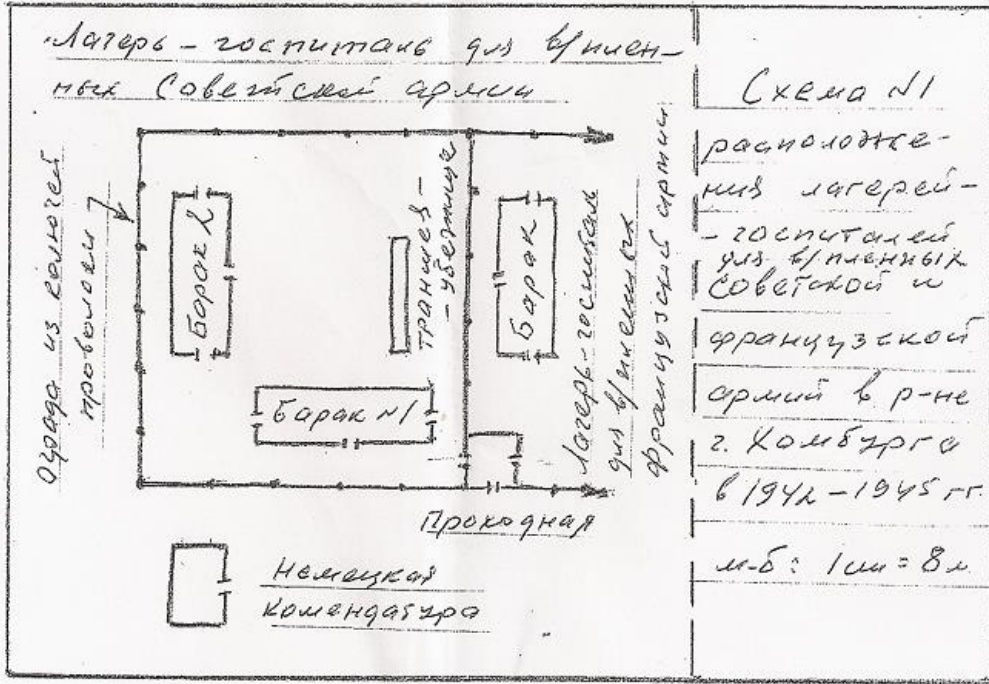 Лагерь-госпиталь для в/плен-
ных Советской армии
Ограда из колючей
проволоки
Барак 2
Траншея-
-убежище
Барак
Барак №1
Лагерь-госпиталь
для в/пленных
французской армии
Проходная
Немецкая
комендатура
Схема №1
расположе-
ния лагерей-
-госпиталей
для в/пленных
советской и
французской
армий в р-не
г. Хомбурга
в 1942-1945 гг.
м-б: 1 см = 8 м